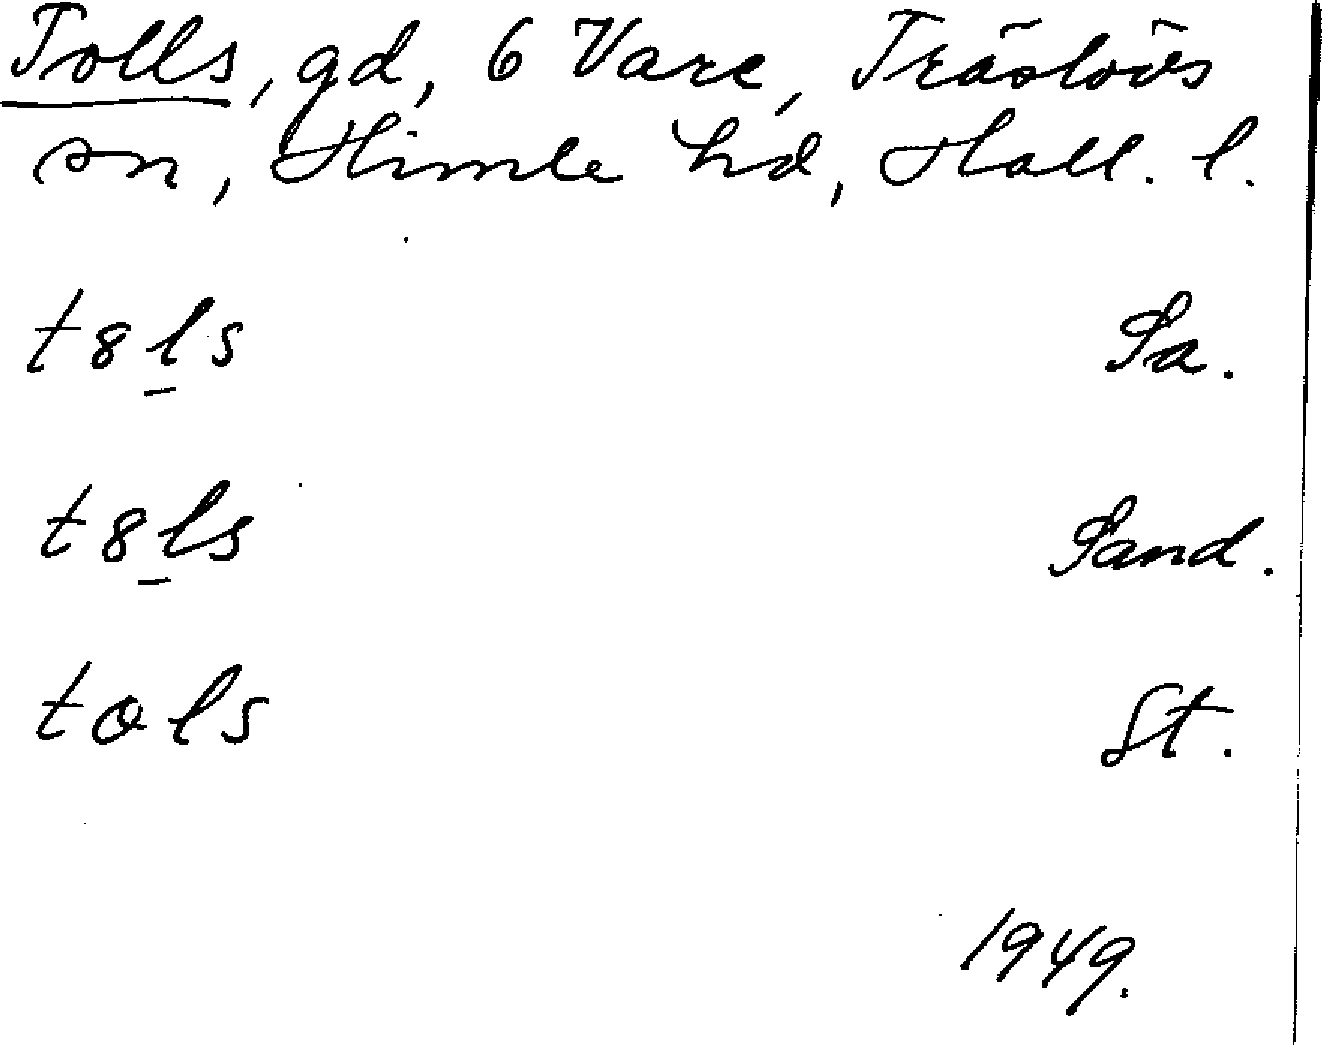 Tolls, gd, 6 Vare, Träslövs
sn, Himle hd, Hall. l.
t8l̲s Sa.
t8l̲s Sand.
tols St.
1949.